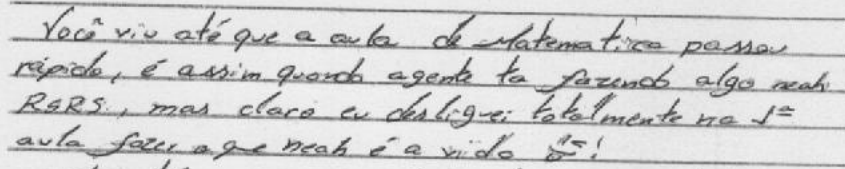 Você viu até que a aula de Matematica passou
rápido, é assim quando agente ta fazendo algo neah
RSRS, mas claro eu desliguei totalmente na 1ª
aula fazer o que neah é a vida